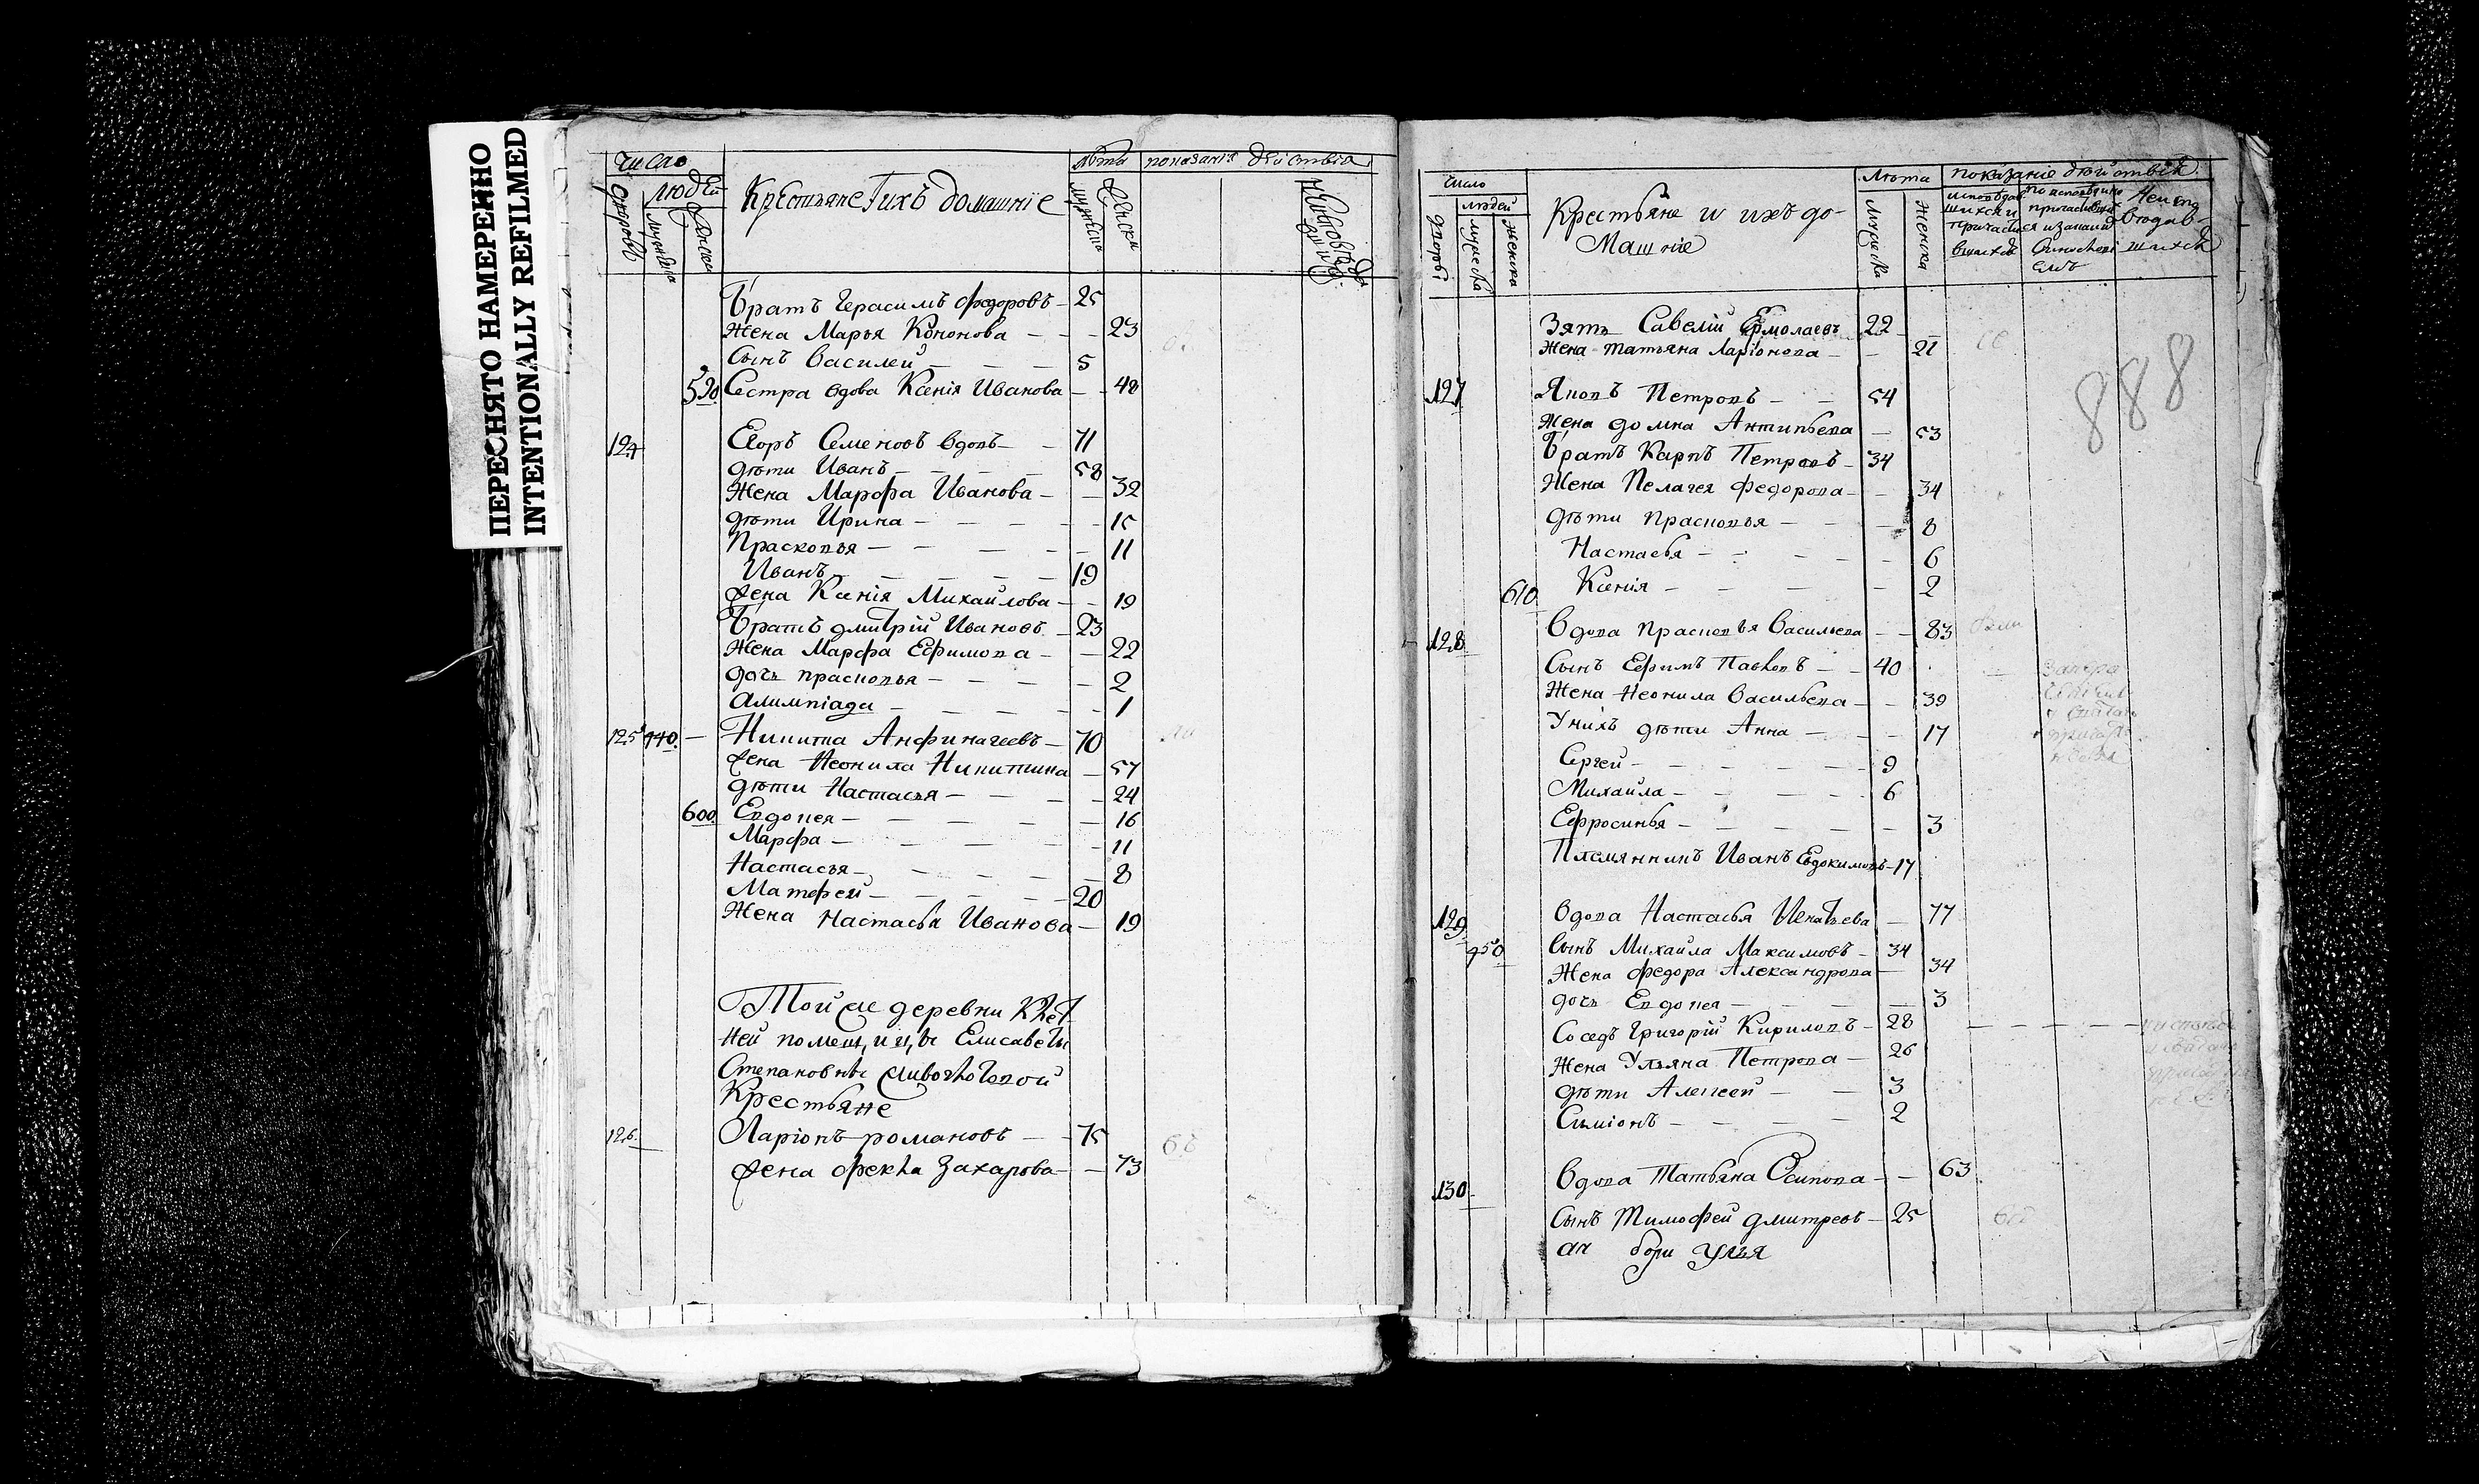 ПЕРЕСНЯТО НАМЕРЕННО
INTENTIONALLY REFILMED
число
людей
дворовъ
мужеска
женска
Крестьяне и ихъ домашніе
лѣта
мужеска
женска
показанія дѣиствія
Братъ Герасимъ Федоровъ — 25
Жена Марья Кононова — — — 23
Сынъ Василей — — — 5
590 Сестра вдова Ксенія Иванова — — 48
124 Егоръ Семеновъ вдовъ — — 71
дѣти Иванъ — — — — 58
Жена Марфа Иванова — — 32
дѣти Ирина — — — — 15
Прасковья — — — — 11
Иванъ — — — — 19
жена Ксенія Михайлова — — 19
Братъ дмитрій Ивановъ — 23
Жена Марфа Ефимова — — 22
дочь прасковья — — — — 2
Алимпіада — — — — 1
125 440 — Никита Анфиногеевъ — 70
жена Неонила Никитина — 57
дѣти Настасья — — — — 24
600 Евдокея — — — — 16
Марфа — — — — 11
Настасья — — — — 8
Матфей — — — — 20
Жена Настасья Иванова — 19
Той же деревни
ней помещицы Елисаветы
Степановны
Крестьяне
126 Ларіонъ романовъ — — 75
жена Фекла Захарова — — 73
число
людей
дворовъ
мужеска
женска
Крестьяне и ихъ до-
машніе
Лѣта
Мужеска
Женска
показаніе дѣйствія
888
Зять Савелій Ермолаевъ 22
Жена татьяна Ларіонова — — 21
127 Яковъ Петровъ — — 54
Жена домна Антипьева — 53
Братъ Карпъ Петровъ — 34
Жена Пелагея Федорова — — 34
дѣти прасковья — — — 8
Настасья — — — — 6
610 Ксенія — — — — 2
128 Вдова прасковья Васильева — — 83
Сынъ Ефимъ Павловъ — — 40
Жена Неонила Васильева — — 39
У нихъ дѣти Анна — — — 17
Сергей — — — — 9
Михайла — — — — 6
Ефросинья — — — — 3
Племянникъ Иванъ Евдокимовъ — 17
129 Вдова Настасья Игнатьева — 77
450 Сынъ Михайла Максимовъ — 34
Жена федора Александрова — 34
дочь Евдокея — — — — 3
Соседъ Григорій Кириловъ — 28
Жена Ульяна Петрова — 26
дѣти Алексей — — 3
Симіонъ — — — — 2
130 Вдова Татьяна Осипова — — 63
Сынъ Тимофей дмитревъ — 25